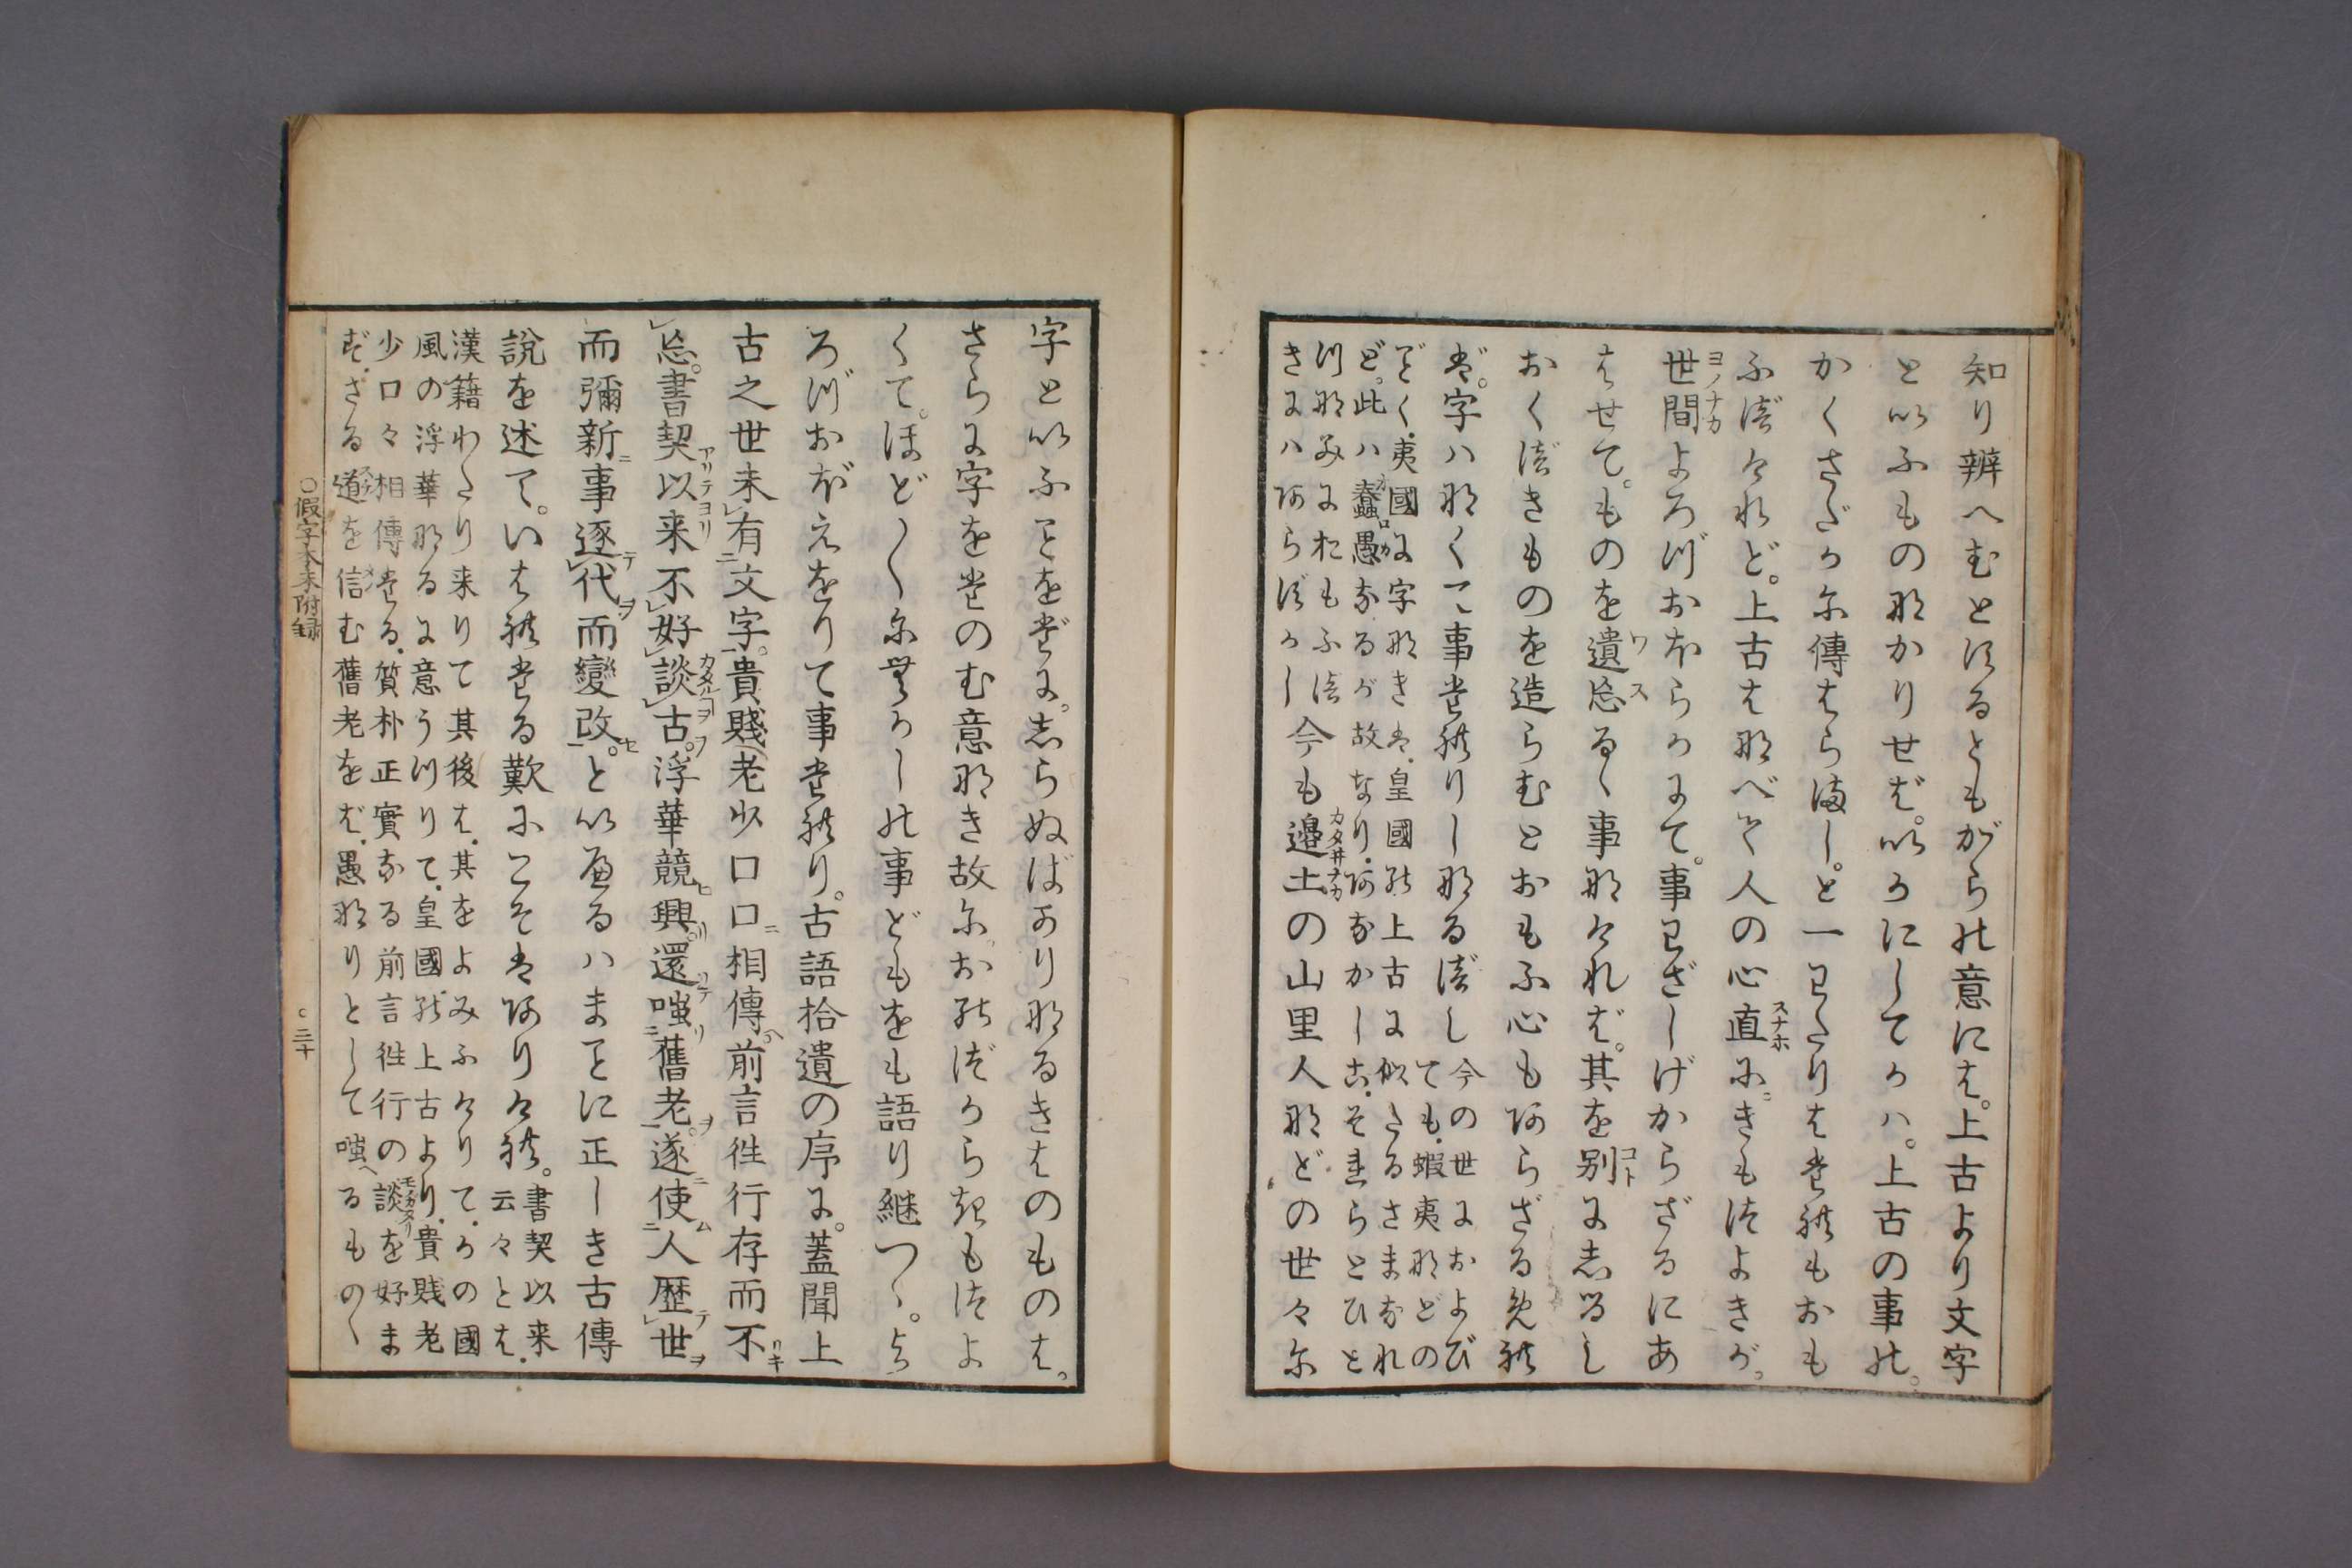 知り辨へむとするともがらの意には。上古より文字
といふものなかりせば。いかにしてかハ。上古の事の。
かくさだかに傳はらまし。と一わたりはたれもおも
ふべけれど。上古はなべて人の心直に。きもつよきが。
世間よろづおほらかにて。事わざしげからざるにあ
はせて。ものを遺忘るゝ事なければ。其を別にしるし
おくべきものを造らむとおもふ心もあらざるめれ
ば。字ハなくて事たれりしなるべし
今の世におよび
ても。蝦夷などの
ごく。夷國に字なきは。皇國の上古に似たるさまなれ
ど。此ハ蠢愚なるが故なり。あなかしこ。それらとひと
つなみにおもふべ
きにハあらずかし
今も邊土の山里人などの世々に
字といふことをだに。しらぬばかりなるきはのものは。
さらに字をたのむ意なき故に。おのづからきもつよ
くて。ほど〳〵に無かし此事どもをも語り継つゝ。よ
ろづおぼえをりて事たれり。古語拾遺の序に。蓋聞上
古之世未有文字。貴賤老少口口相傳前言往行存而不
忘。書契以来不好談古。浮華競興還嗤舊老。遂使人歴世
而彌新事逐代而變改。といへるハまことに正しき古傳
説を述て。いはれたる歎にこそはありけれ。
書契以来
云々とは。
漢籍わたり来りて其後は。其をよみふけりて。かの國
風の浮華なるに意うつりて。皇國の上古より。貴賤老
少口々相傳たる。質朴正實なる前言往行の談を好ま
ず。さる道を信む舊老をば。愚なりとして嗤へるものゝ
○假字本末附録
○二十